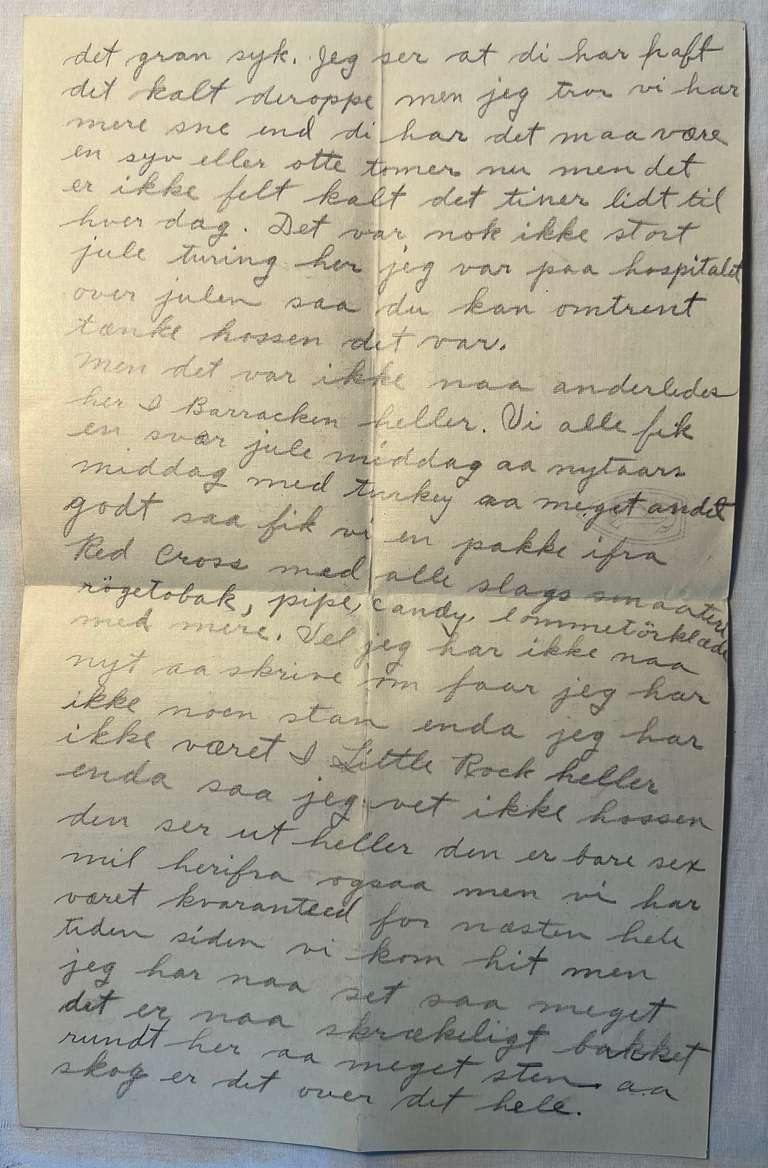 det gran syk. Jeg ser at di har haft
det kalt deroppe men jeg tror vi har
mere sne end di har det maa være
en syv eller otte tomer nu men det
er ikke felt kalt det tiner lidt til
hver dag. Det var nok ikke stort
jule turing her jeg var paa hospitalet
over julen saa du kan omtrent
tænke hossen det var.
men det var ikke naa anderledes
her I Barracken heller. Vi alle fik
en svær jule middag aa nytaars
middag med turkey aa meget andet
godt saa fik vi en pakke ifra
Red Cross med alle slags smaateri
rögetobak, pipe, candy, lommetörklæde
med mere. Vel jeg har ikke naa
nyt aa skrive om faar jeg har
ikke noen stan enda jeg har
ikke været I Little Rock heller
enda saa jeg vet ikke hossen
den ser ut heller den er bare sex
mil herifra ogsaa men vi har
været kvaranteed for næsten hele
tiden siden vi kom hit men
jeg har naa set saa meget
det er naa skrækeligt bakket
rundt her aa meget sten aa
skog er det over det hele.